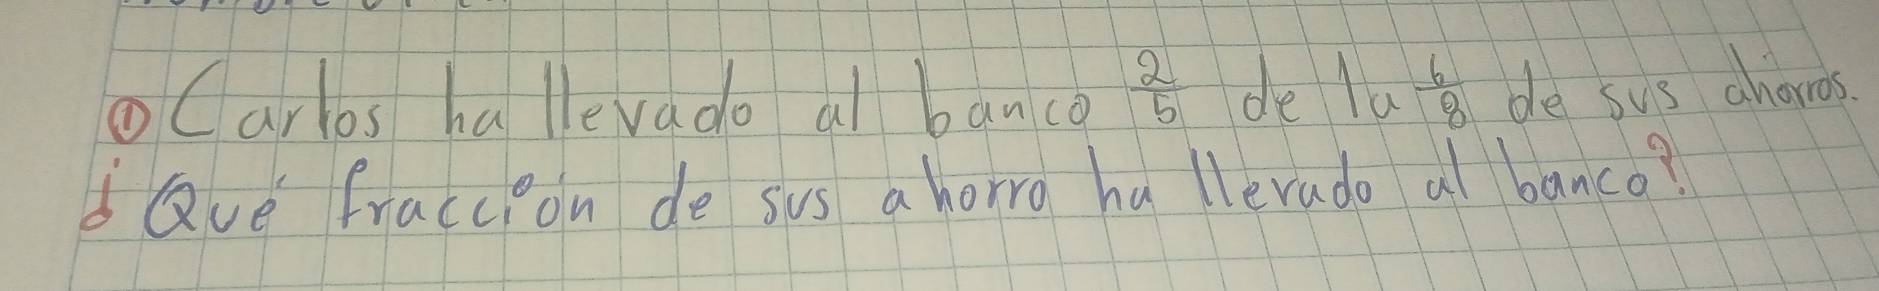 ① Carlos ha llevado al banco 2/5 de la 6/8 de sus ahorros.
¿Qué fracción de sus ahorro ha llevado al banco?